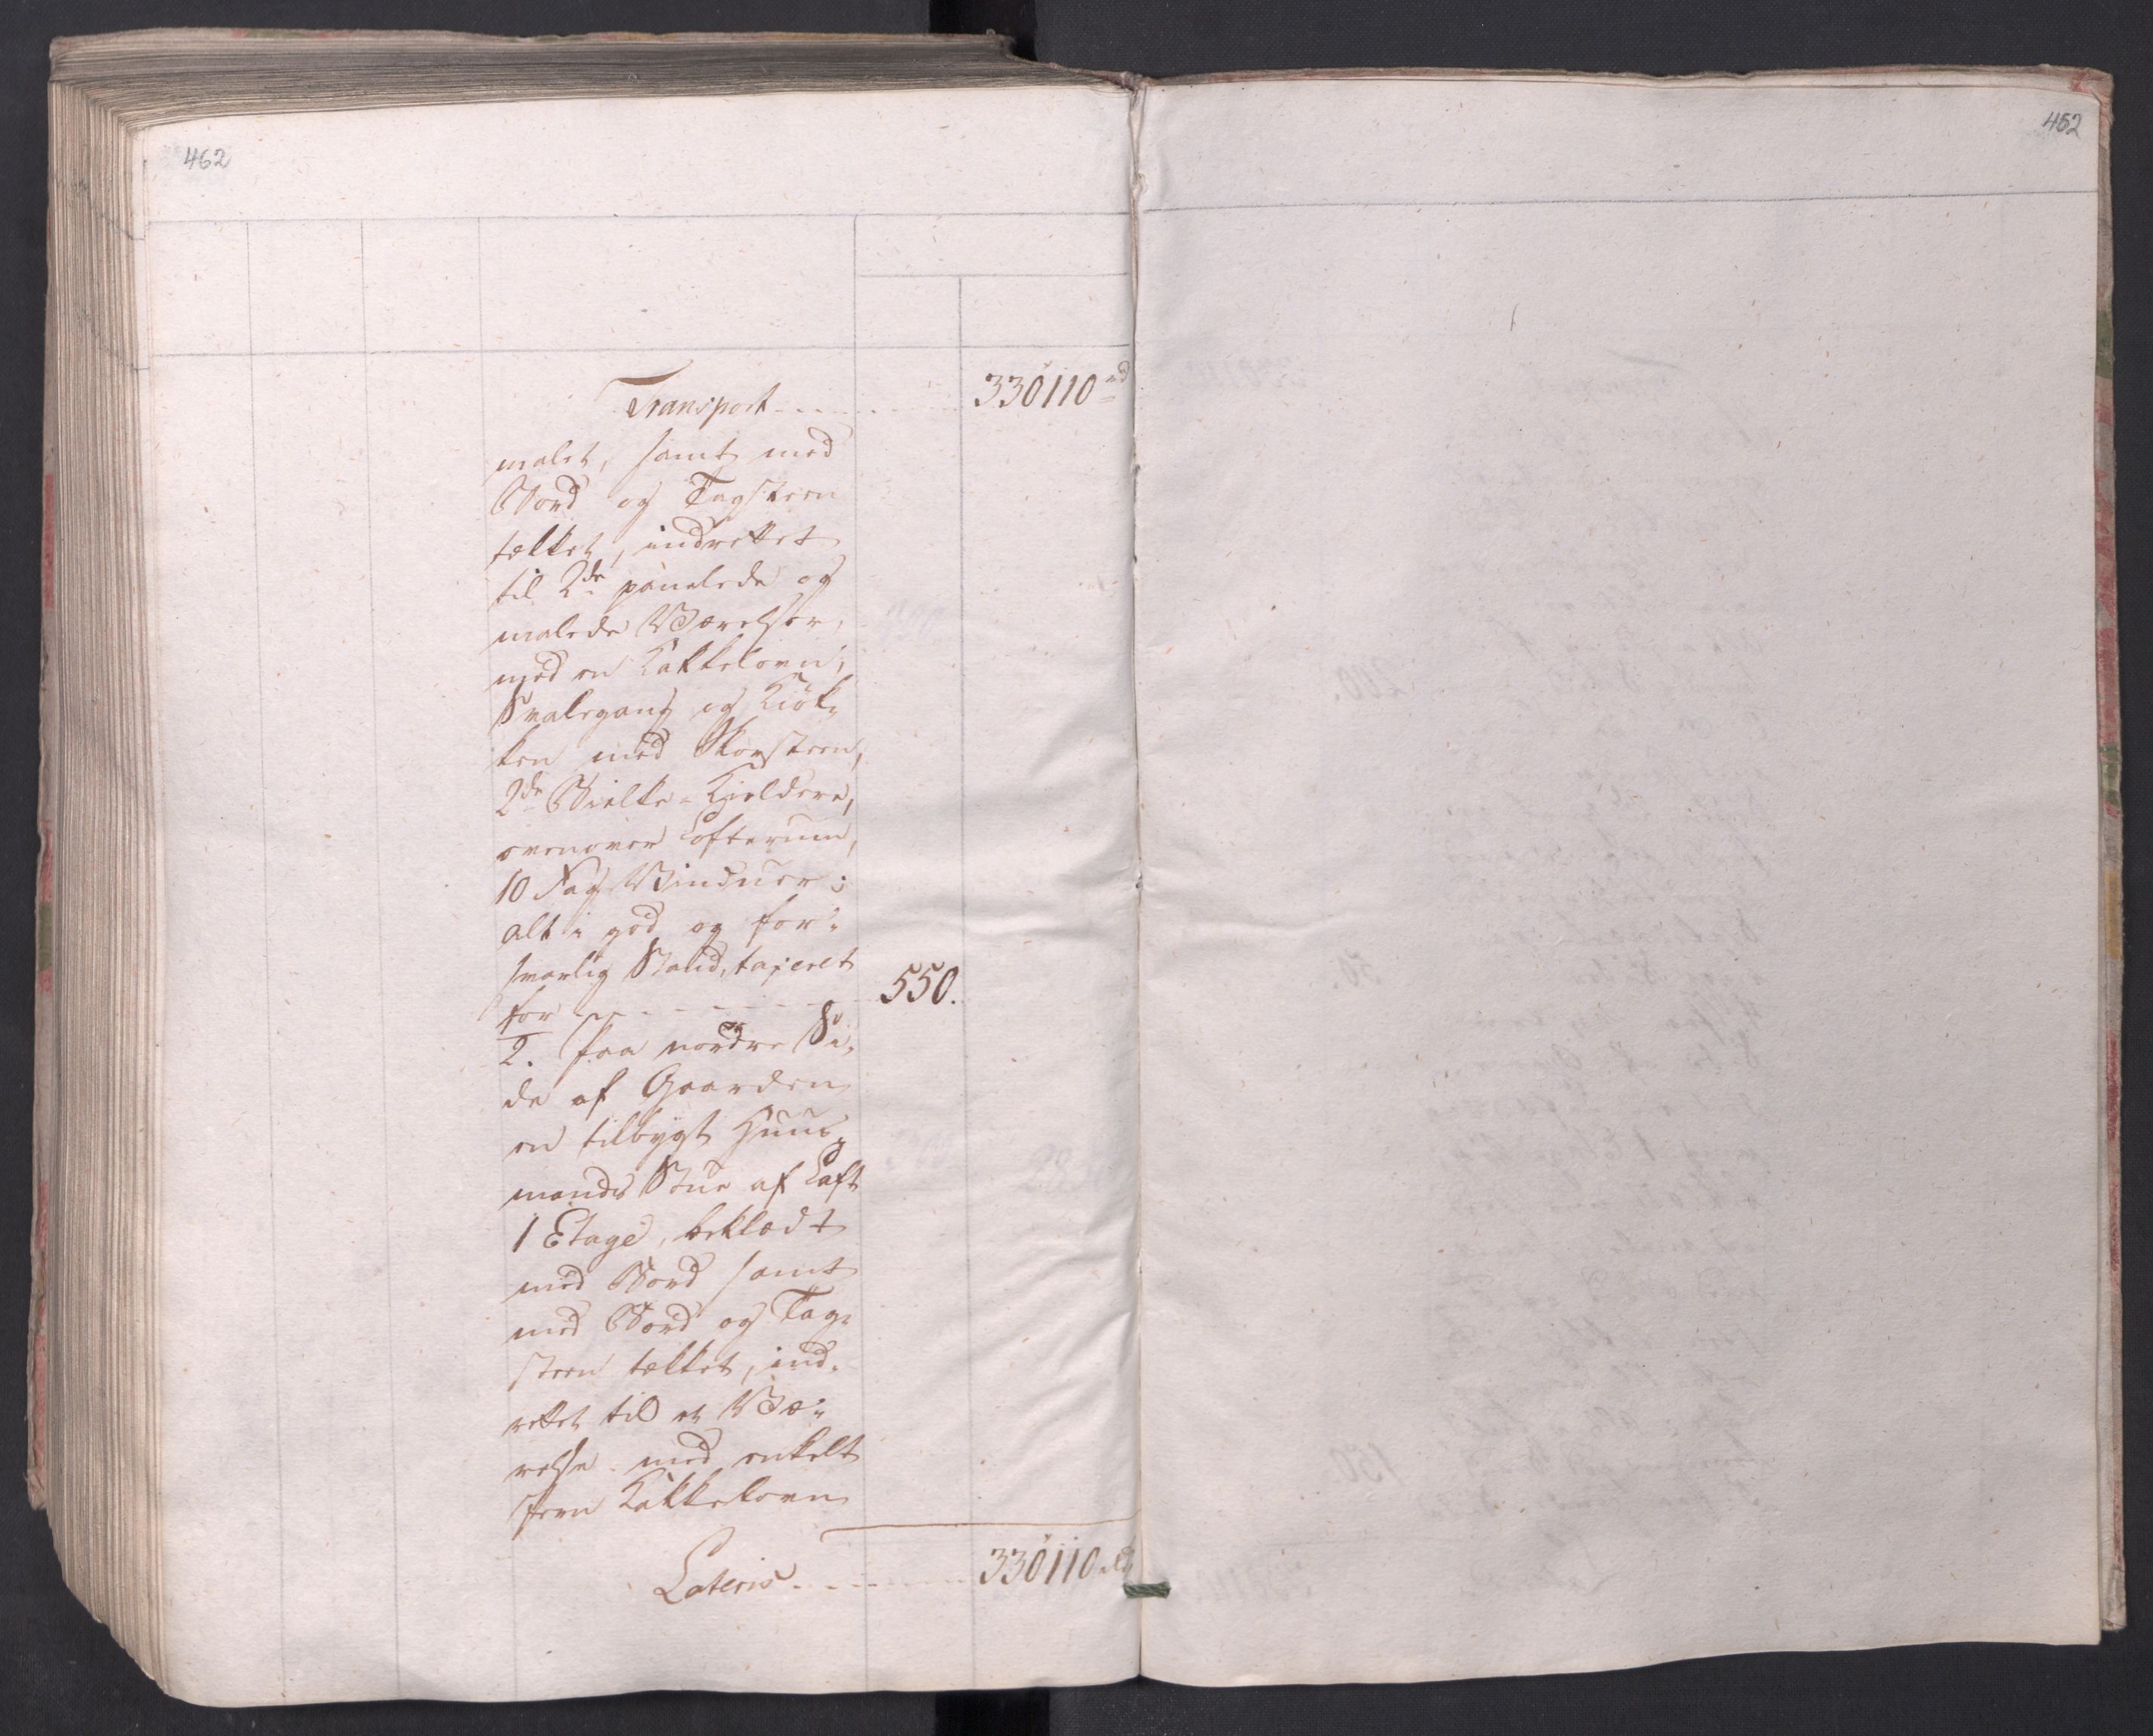 462
462
Transport - - - - - - - 330110 rd
malet, samt med
Bord og Tagsteen
tækket, indrettet
til 2de panelede og
malede Værelser,
med en Kakkelovn,
Svalegang og Kiøk-
ken med Skorsteen,
2de Bielke-Kieldere,
ovenover Lofterum,
10 Fag Vinduer;
alt i god og for-
svarlig Stand, taxeret
for - - - - - - - 550.
2. paa nordre Si-
de af Gaarden
en tilbygt Huus-
mands Stue af Laft
1 Etage, beklædt
med Bord samt
med Bord og Tag-
steen tækket, ind-
rettet til et Væ-
relse med enkelt
Jern Kakkelovn
Lateris - - - - - - 330110 rd